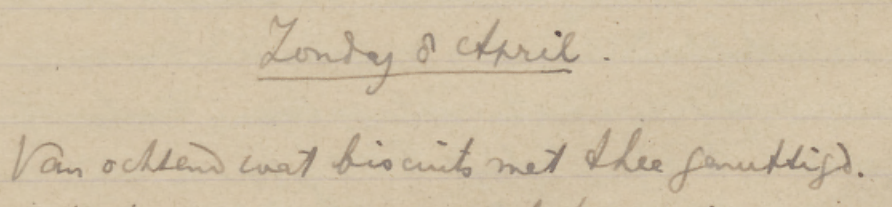 Zondag 8 April.
Van ochtend wat biscuits met thee genuttigd.